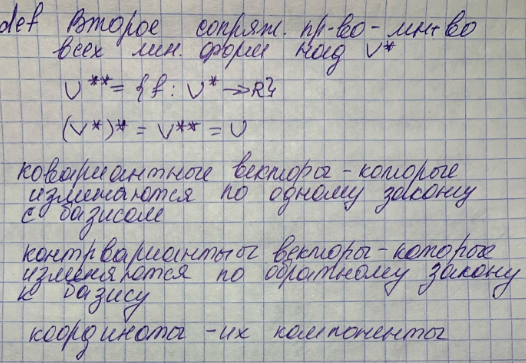 def Второе сопряж. пр-во - мн-во
всех лин. форм над V*
V** = {f : V* → R}
(V*)* = V** = V
ковариантные векторы - которые
изменяются по одному закону
с базисом
контрвариантыы векторы - которые
изменяются по обратному закону
к базису
координаты - их компоненты